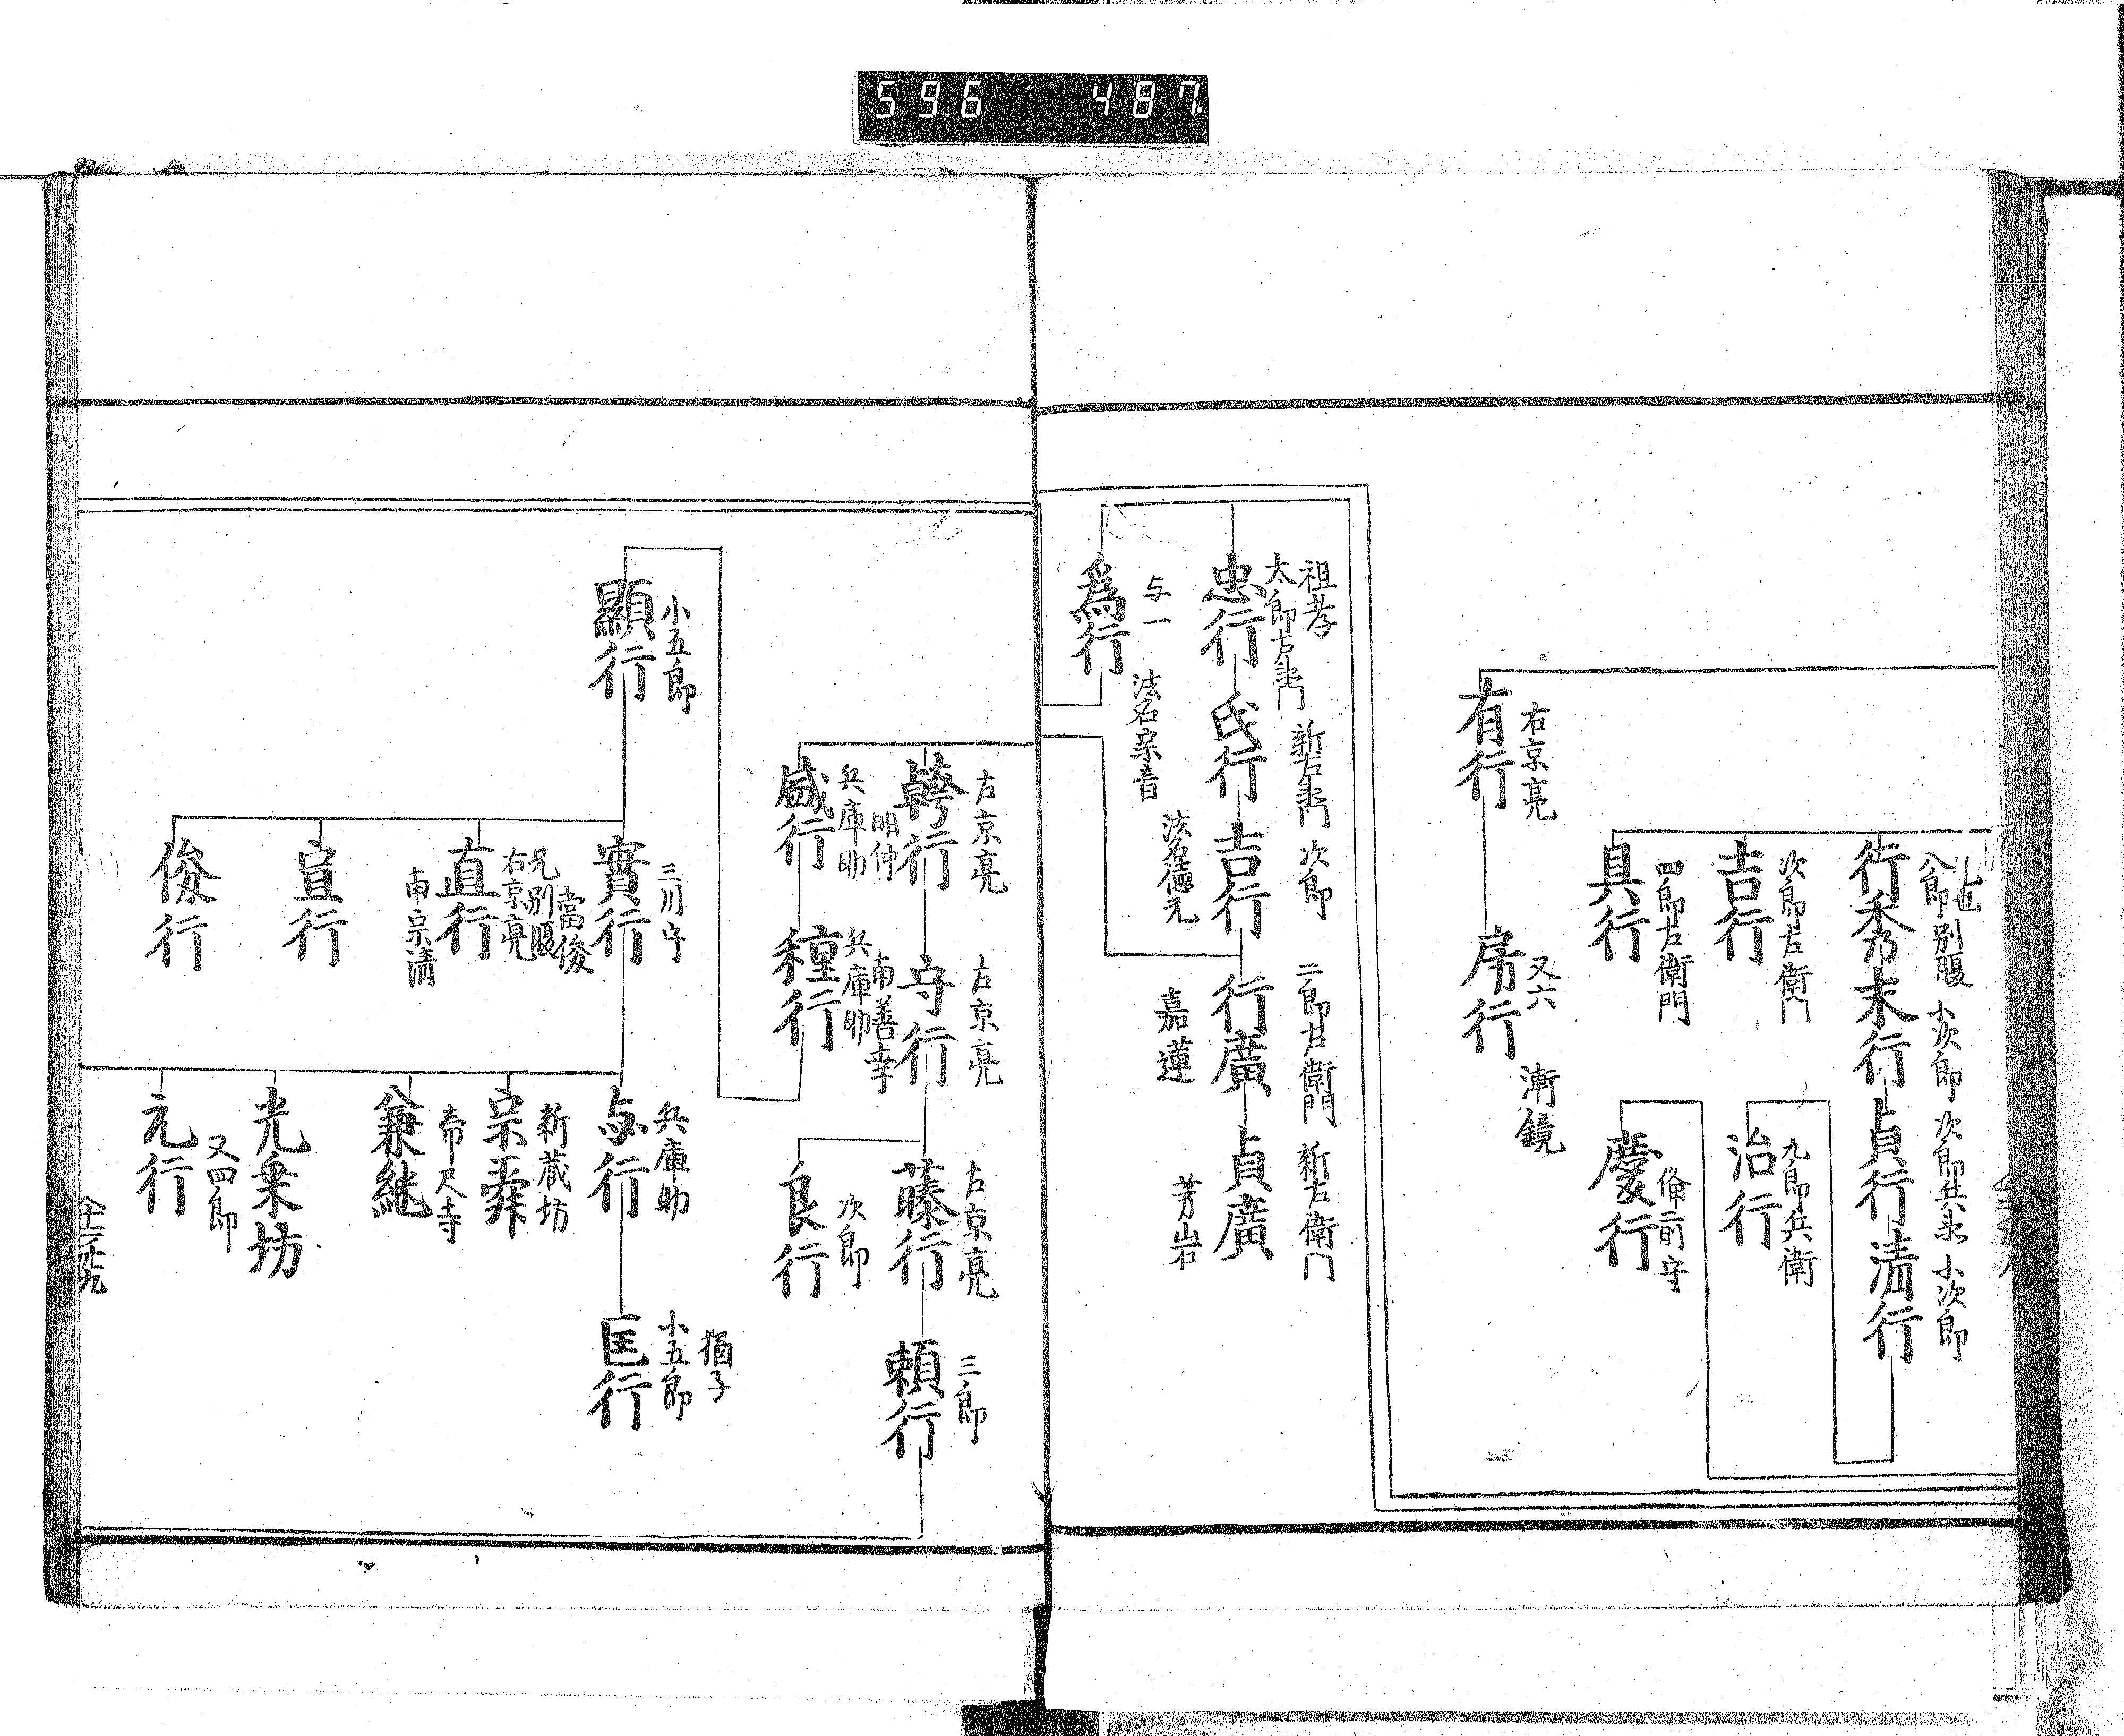 596 487
八郎別腹
小次郎
末行
次郎兵衛
貞行
小次郎
清行
次郎左衛門
吉行
九郎兵衛
治行
四郎右衛門
具行
慶行
右京亮
有行
又六
房行
漸鏡
祖孝
忠行
氏行
次郎
吉行
法名徳元
二郎右衛門
行廣
嘉蓮
新右衛門
貞廣
芳岩
与一
為行
法名宗音
右京亮
右京亮
守行
右京亮
藤行
三郎
頼行
次郎
良行
明仲
兵庫助
盛行
南善幸
兵庫助
種行
小五郎
顯行
三川守
實行
兵庫助
与行
猶子
小五郎
匡行
當俊
兄別腹
右京亮
直行
南宗清
宣行
俊行
新蔵坊
宗舜
兼継
光乗坊
又四郎
元行